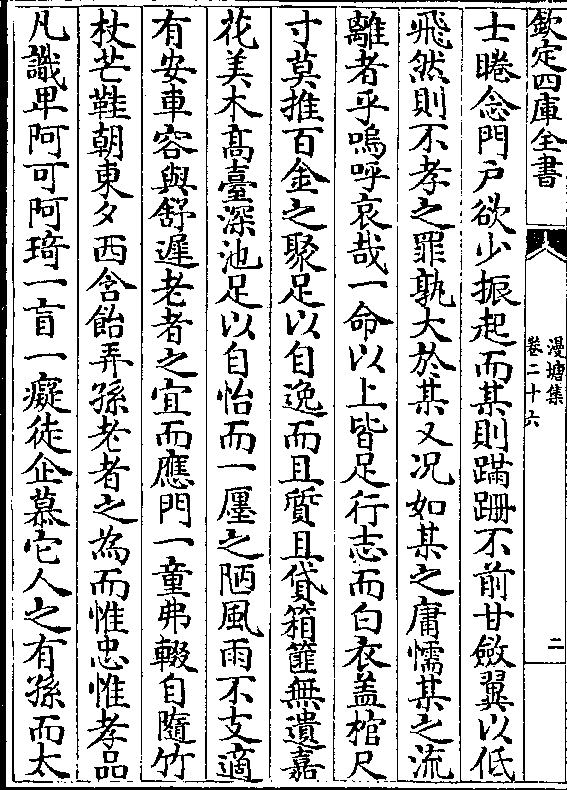 欽定四庫全書
漫塘集
卷二十六
二
士睠念門户欲少振起而某則蹣跚不前甘斂翼以低
飛然則不孝之罪孰大於某又况如某之庸懦某之流
離者乎嗚呼哀哉一命以上皆足行志而白衣盖棺尺
寸莫推百金之聚足以自逸而且質且貸箱篚無遺嘉
花美木髙臺深池足以自怡而一廛之陋風雨不支適
有安車容與舒遲老者之宜而應門一童弗輟自隨竹
杖芒鞋朝東夕西含飴弄孫老者之為而惟忠惟孝品
凡識卑阿可阿琦一盲一癡徒企慕它人之有孫而太